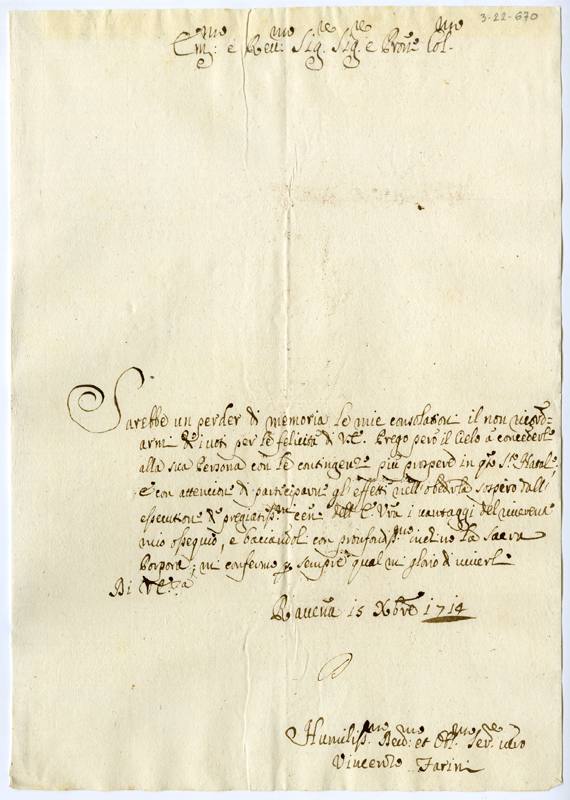 3-22-670
Em:mo e Reu:mo Sig:re Sig:re e Prone Col:mo
Sarebbe un perder di memoria le mie consolationi il non ricord=
armi de i uoti per le felicità di V.E. Prego però il Cielo a concederle
alla sua Persona con le contingenze più prospere in qto Sto Natale
e con attencion di participarne gli effetti nell'obedirla sospiro dalli
essecution de pregiatissmi cenni dell' E. Vra i uantaggi del riuerente
mio ossequio, e baciandole con profondissmo inchino la Sacra
Porpora, mi confermo per sempre qual mi glorio di uiuerle
Di V.E.za
Rauena 15 Xbre 1714
Humilissmo Deuo:mo et Obl:mo Ser:re uero
Vincenzo Farini